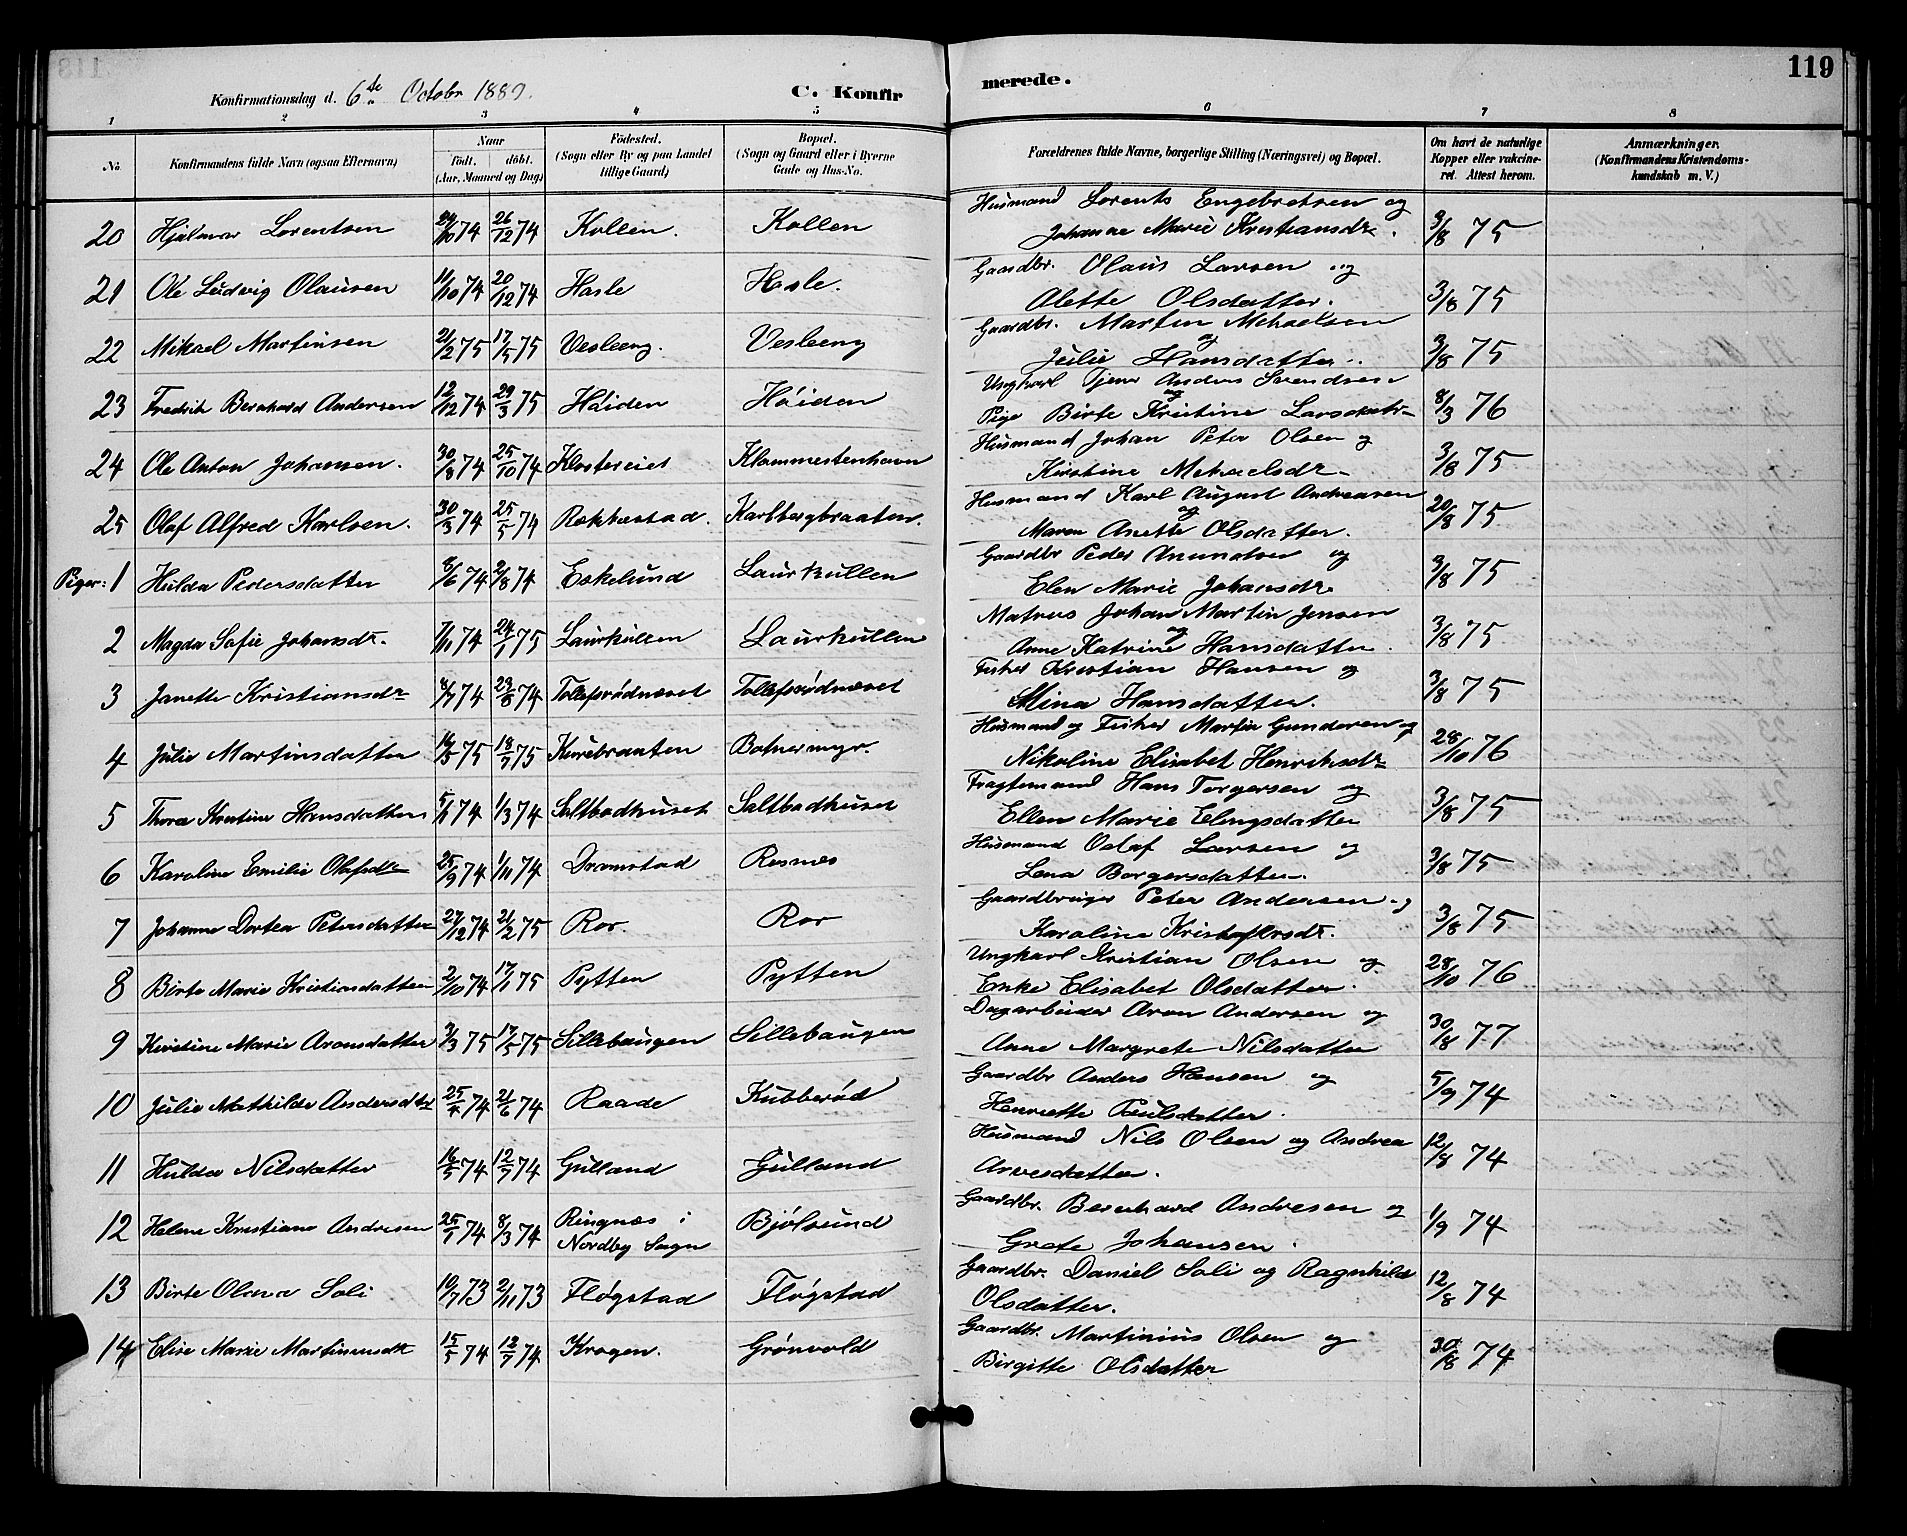 119
Konfirmationsdag d. 6te Octobr 1889. C. Konfirmerede.
1 2 3 4 5 6 7 8
No. Konfirmandens fulde Navn (ogsaa Efternavn) Naar født. døbt. (Aar, Maaned og Dag) Födested. (Sogn eller By og paa Landet tillige Gaard) Bopæl. (Sogn og Gaard eller i Byerne Gade og Hus-No. Forældrenes fulde Navne, borgerlige Stilling (Næringsvei) og Bopæl. Om havt de naturlige Kopper eller vakcineret. Attest herom. Anmærkninger. (Konfirmandens Kristendomskundskab m. V.)
20 Hjalmar Lorentsen 29/10 74 26/12 74 Kollen. Kollen Husmand Lorents Engebretsen og
Johanne Marie Kristiansdr. 3/8 75
21 Ole Ludvig Olausen 11/10 74 20/12 74 Hasle Hasle. Gaardbr. Olaus Larsen og
Alette Olsdatter. 3/8 75
22 Mikael Martinsen 21/2 75 17/5 75 Vesleeng. Vesleeng Gaardbr. Martin Mehaelsen
og Julie Hansdatter. 3/8 75
23 Fredrik Bernhard Andersen 12/12 74 29/3 75 Høiden Høiden Ungkarl Tjener Anders Svendsen
og Pige Birte Kristine Larsdatr 8/3 76
24 Ole Anton Johansen. 30/8 74 25/10 74 Klostereiet Klammestenhavn Husmand Johan Peter Olsen og
Kirstine Mehaelsdr 3/8 75
25 Olaf Alfred Karlsen. 30/3 74 25/5 74 Rækkestad. Karlbergbraaten. Husmand Karl August Andreasen
og Maren Anette Olsdatter. 20/8 75
Piger: 1 Hulda Pedersdatter 8/6 74 2/8 74 Eekelund Laurkullen Gaardbr Peder Amundsen og
Elen Marie Johansdr 3/8 75
2 Magda Sofie Johansdr. 7/11 74 24/1 75 Laurkullen Laurkullen Matros Johan Martin Jensen
og Anne Katrine Hansdatter. 3/8 75
3 Janette Kristiansdr 4/7 74 23/8 74 Tollefsrødnæset Tollefsrødnæset Fisker Kristian Hansen og
Mina Hansdatter. 3/8 75
4 Julie Martinsdatter 16/5 75 18/7 75 Kurebraaten Botnermyr. Husmand og Fisker Martin Gundersen og
Nikoline Elisabet Henriksdr 28/10 76
5 Thora Kristine Hansdatter 5/1 74 1/3 74 Saltbodhuset Saltbodhuset Fragtemand Hans Torgersen og
Ellen Marie Elingsdatter 3/8 75
6 Karoline Emilie Olafsdr 25/9 74 1/11 74 Dramstad Rosnes Husmand Oolaf Larsen og
Lena Borgersdatter. 3/8 75
7 Johanne Dortea Petersdatter 27/12 74 21/2 75 Ror. Ror Gaardbruger Peter Andersen og
Karoline Kristofersdr. 3/8 75
8 Birte Marie Kristiansdatter 2/10 74 17/1 75 Pytten Pytten Ungkarl Kristian Olsen og
Enke Elisabet Olsdatter. 28/10 76
9 Kirstine Marie Aronsdatter 3/3 75 17/5 75 Sillebaugen Sillebaugen Dagarbeider Aron Andersen og
Anne Margrete Nilsdatter 30/8 77
10 Julie Mathilde Andersdtr 25/4 74 21/6 74 Raade Kubberød Gaardbr Anders Hansen og
Henriette Paulsdatter. 5/9 74
11 Hulda Nilsdatter 16/5 74 12/7 74 Gulland Gulland Husmand Nils Olsen og Andrea
Arnesdatter. 12/8 74
12 Helene Kristiane Andresen 25/1 74 8/3 74 Ringnæs i
Nordby Sogn Bjølsund Gaardbr. Bernhard Andresen og
Grete Johansen. 1/9 74
13 Birte Olava Soli 10/7 73 2/11 73 Fløgstad Fløgstad Gaardbr. Daniel Soli og Ragnhild
Olsdatter. 12/8 74
14 Elise Marie Martinusdr 15/5 74 12/7 74 Krogen. Grønvold Gaardbr. Martinius Olsen og
Birgitte Olsdatter 30/8 74